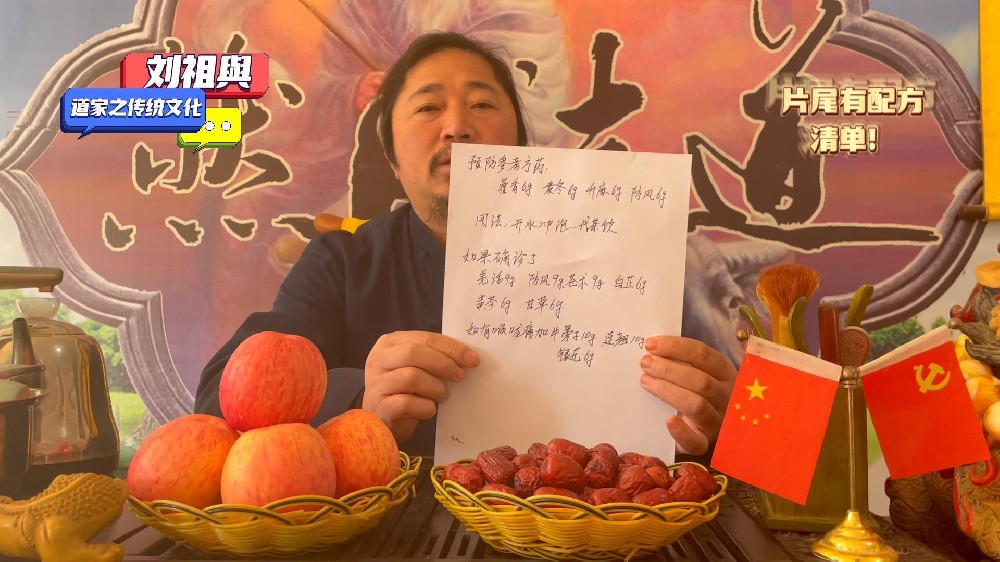 刘祖與
道家之传统文化
片尾有配方
清单!
预防参考方药:
藿香6g 麦冬6g 升麻6g 防风6g
用法:开水冲泡 代茶饮
如果确诊了
羌活9g 防风9g 苍术9g 白芷6g
黄芩6g 甘草6g
如有喉咙痛加牛蒡子10g 连翘10g
银花6g